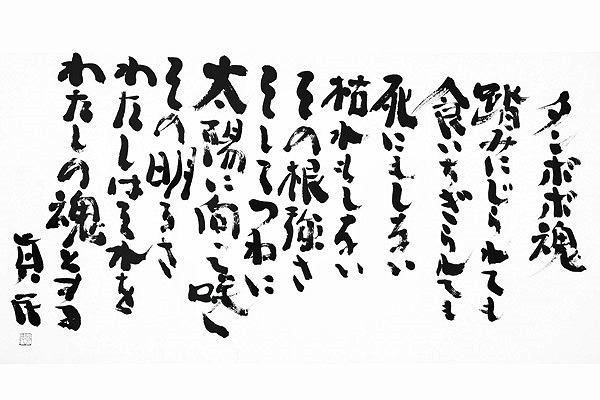 タンポポ魂
踏みにじられても
食いちぎられても
死にもしない
枯れもしない
その根強さ
そしてつねに
太陽に向って咲く
その明るさ
わたしはそれを
わたしの魂とする
真民